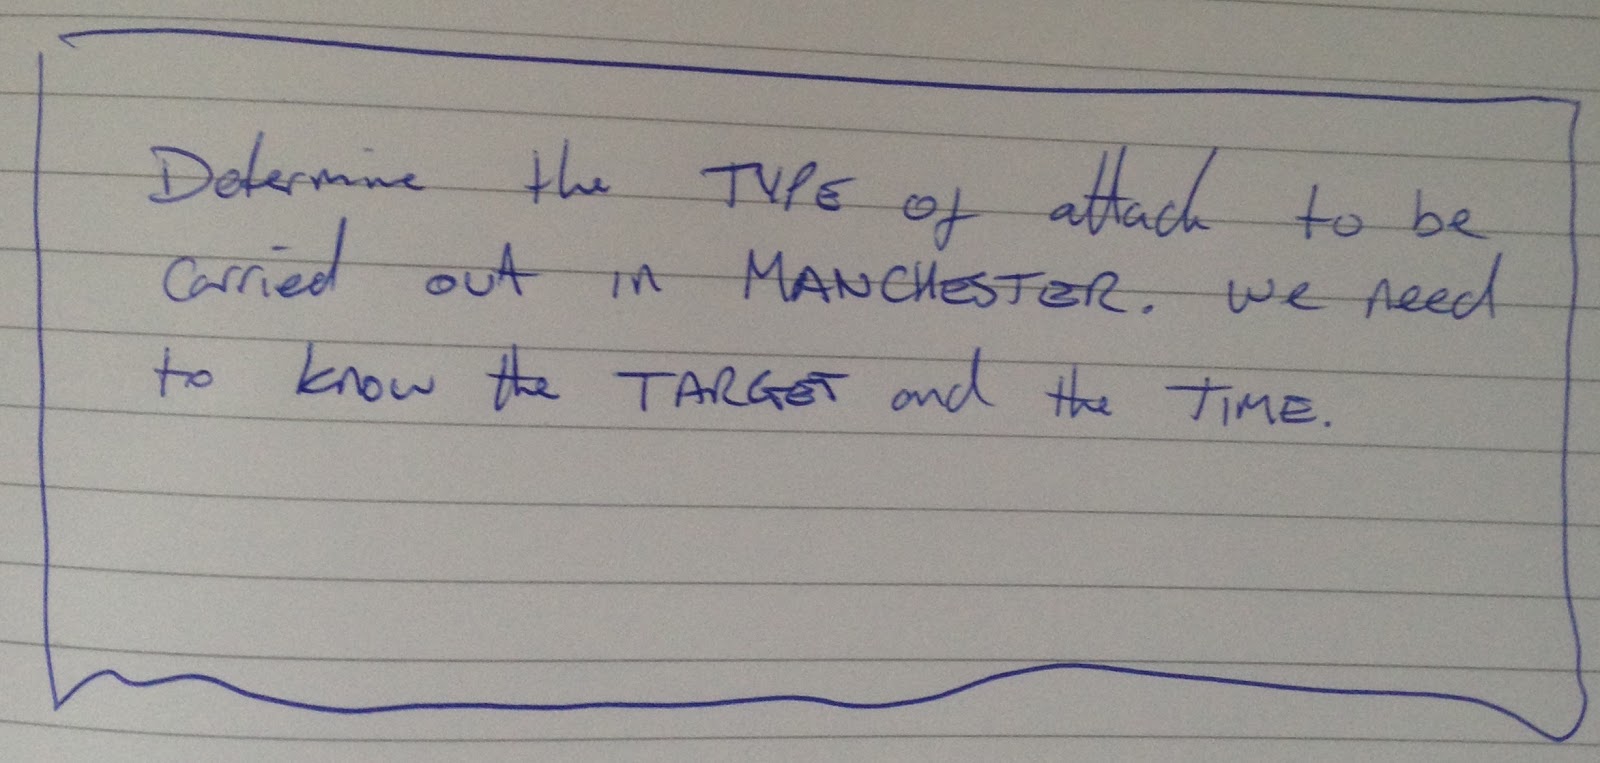 Determine the TYPE of attack to be
carried out in MANCHESTER. We need
to know the TARGET and the TIME.